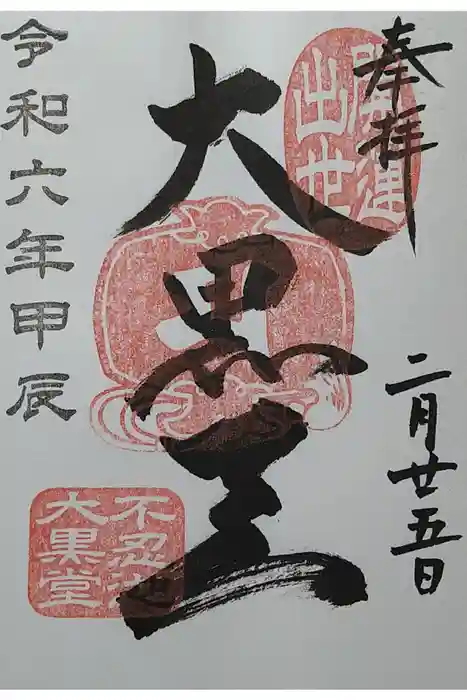 奉拝
開運
出世
二月廿五日
大黒天
令和六年甲辰
不忍池
大黒堂